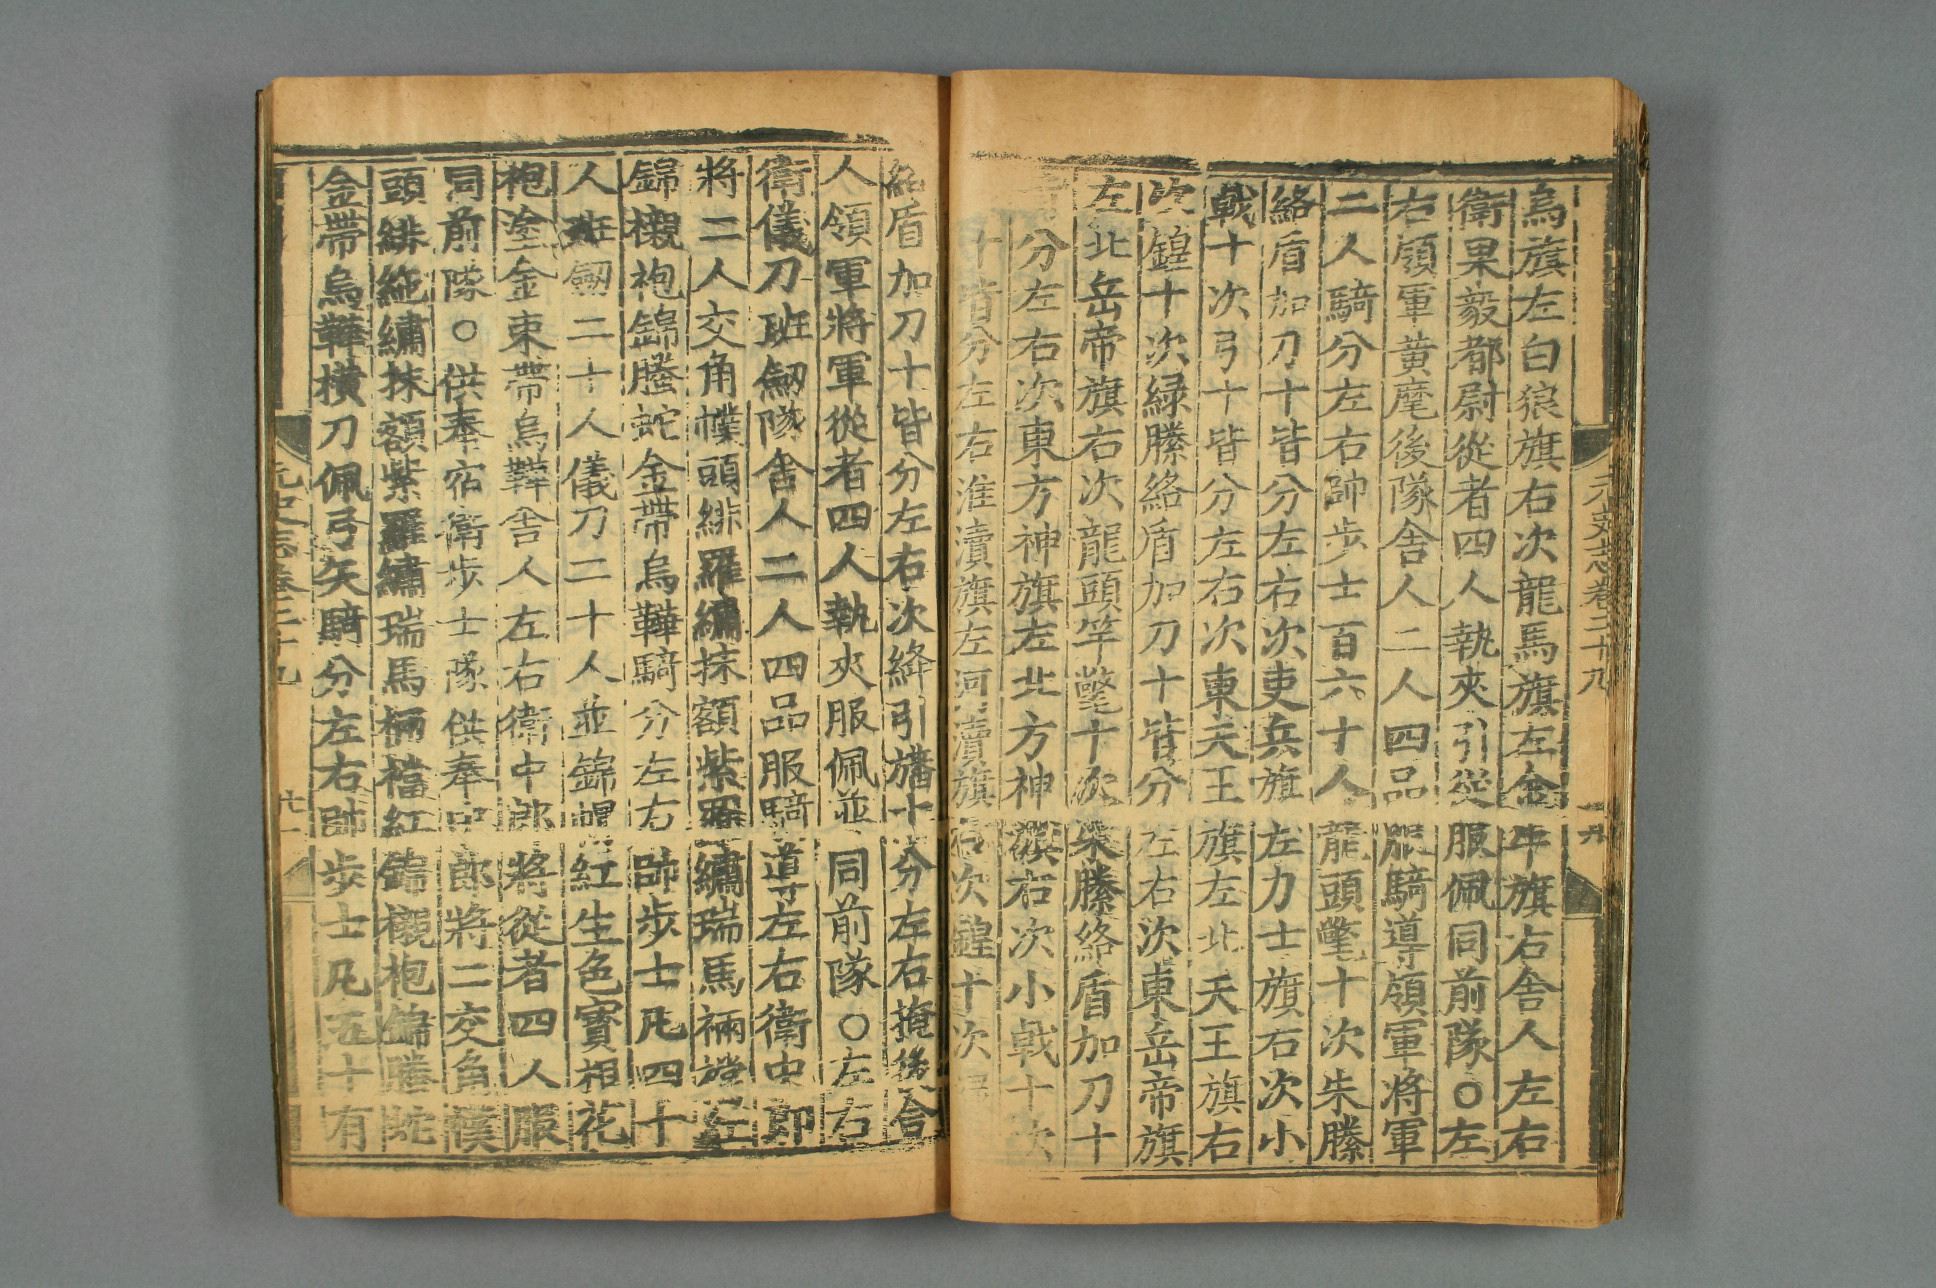 烏旗左白狼旗右次龍馬旗左金牛旗右舍人左右
衛果毅都尉從者四人執夾引從服佩同前隊○左
右領軍黃麾後隊舍人二人四品服騎導領軍將軍
二人騎分左右帥步士百六十人龍頭氅十次朱縢
絡盾加刀十皆分左右次吏兵旗左力士旗右次小
戟十次弓十皆分左右次東天王旗左北天王旗右
次鍠十次緑縢絡盾加刀十皆分左右次東岳帝旗
左北岳帝旗右次龍頭竿氅十次朱縢絡盾加刀十
分左右次東方神旗左北方神旗右次小戟十次
十皆分左右淮瀆旗左河瀆旗右次鍠十次
絡盾加刀十皆分左右次絳引旛十分左右掩後舍
人領軍將軍從者四人執夾服佩並同前隊○左右
衛儀刀班劒隊舍人二人四品服騎導左右衛中郎
將二人交角幞頭緋羅繡抹額紫羅繡瑞馬裲襠紅
錦襯袍錦螣蛇金帶烏鞾騎分左右帥步士凡四十
人班劒二十人儀刀二十人並錦帽紅生色寶相花
袍塗金束帶烏鞾舍人左右衛中郎將從者四人服
同前隊○供奉宿衛步士隊供奉中郎將二交角幞
頭緋絁繡抹額紫羅繡瑞馬裲襠紅錦襯袍錦螣蛇
金帶烏鞾橫刀佩弓矢騎分左右帥步士凡五十有
元史志卷二十九
元史志卷二十九 廿一